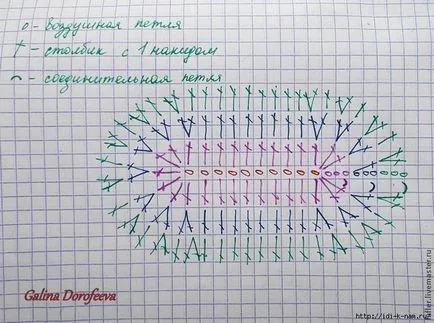 о - воздушная петля
† - столбик с 1 накидом
⌒ - соединительная петля
Galina Dorofeeva
http://idi-k-nam.ru/